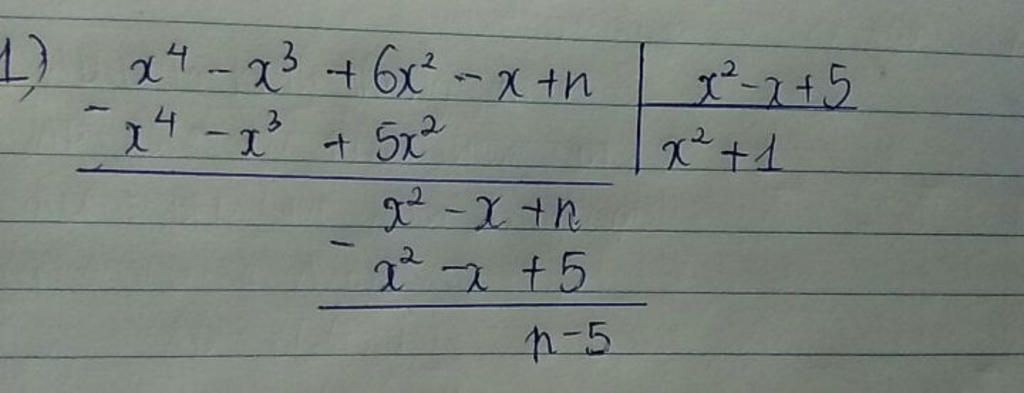 1) x⁴ - x³ + 6x² - x + n | x² - x + 5
- x⁴ - x³ + 5x² | x² + 1
x² - x + n
- x² - x + 5
n - 5